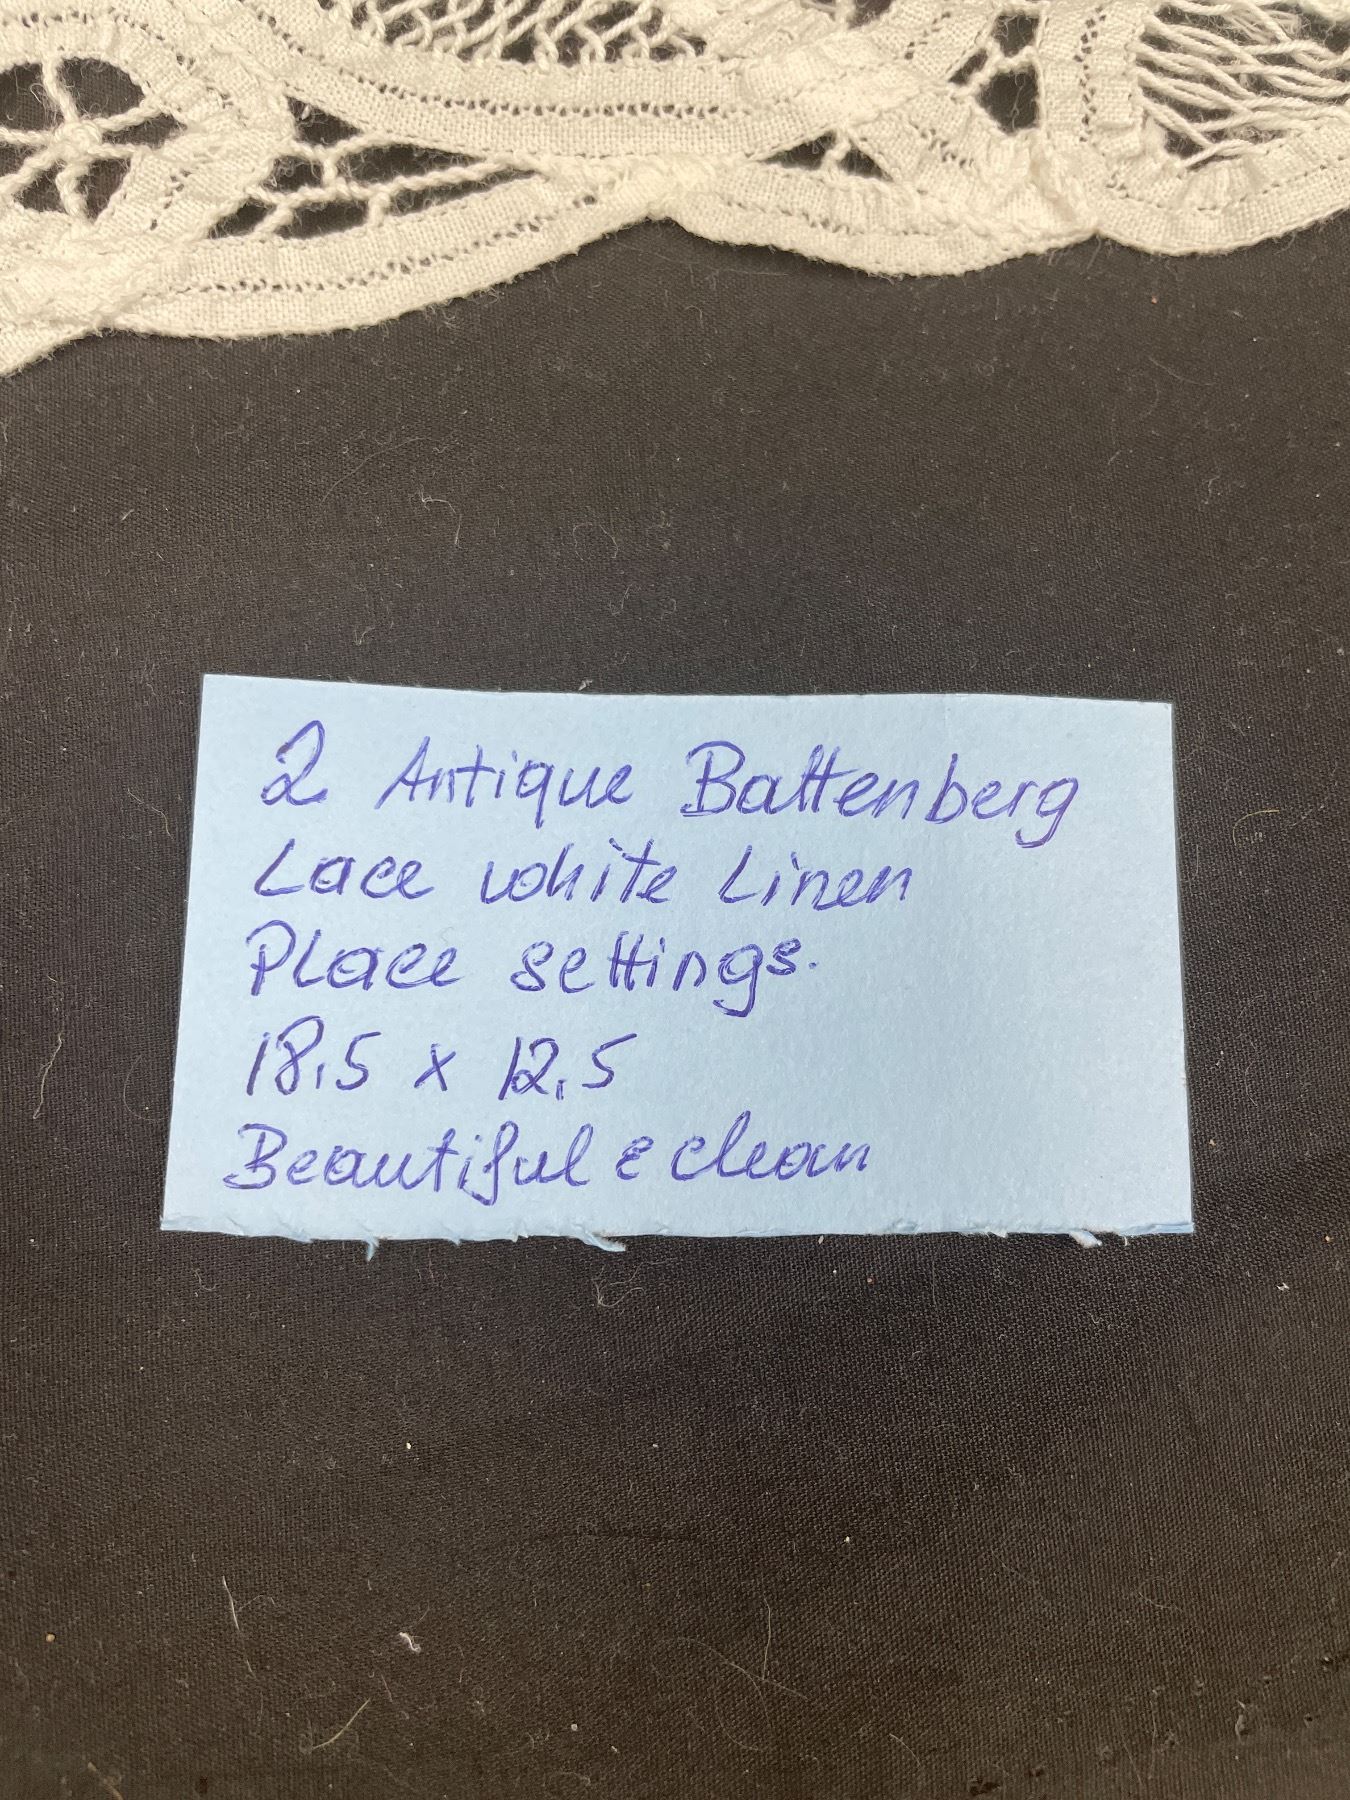 2 Antique Battenberg
Lace white Linen
Place settings.
18,5 x 12,5
Beautiful & clean